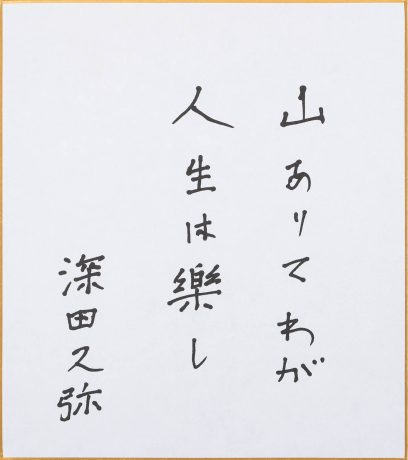 山ありてわが
人生は樂し
深田久弥